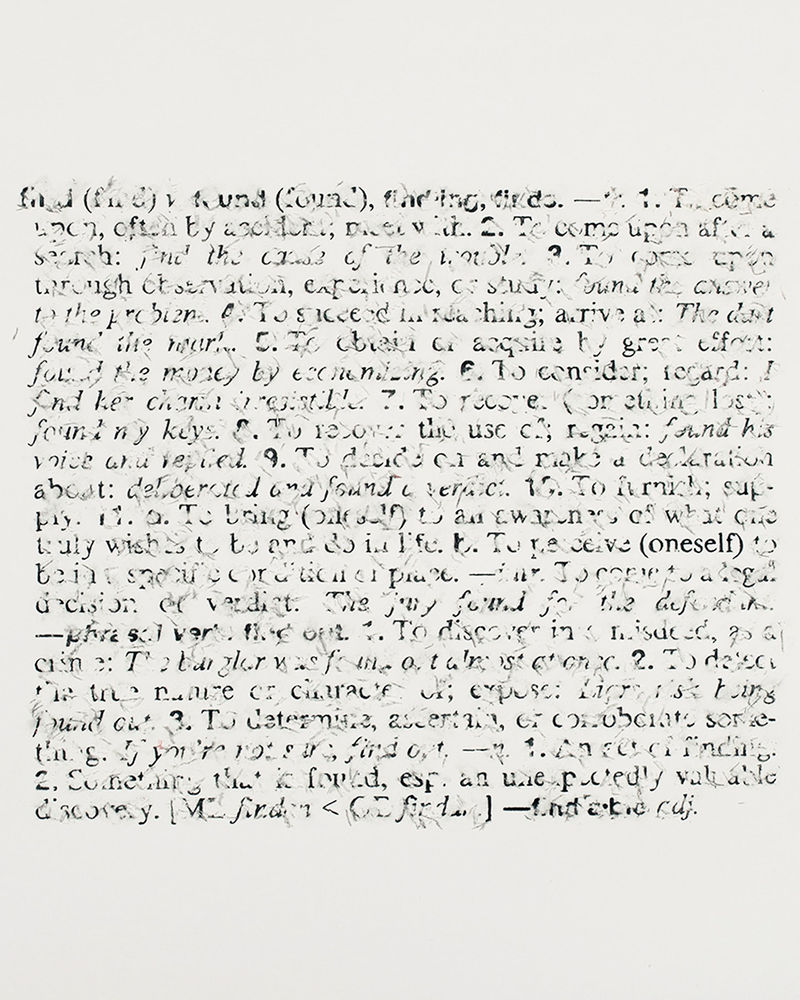 find (find) v. found (found), finding, finds. —tr. 1. To come
upon, often by accident; meet with. 2. To come upon after a
search: find the cause of the trouble. 3. To come upon
through observation, experience, or study: found the answer
to the problem. 4. To succeed in reaching; arrive at: The dart
found the mark. 5. To obtain or acquire by great effort:
found the money by economizing. 6. To consider; regard: I
find her charm irresistible. 7. To recover (something lost):
found my keys. 8. To recover the use of; regain: found his
voice and replied. 9. To decide on and make a declaration
about: deliberated and found a verdict. 10. To furnish; sup-
ply. 11. a. To bring (oneself) to an awareness of what one
truly wishes to be and do in life. b. To perceive (oneself) to
be in a specific condition or place. —intr. To come to a legal
decision or verdict: The jury found for the defendant.
—phrasal verb. find out. 1. To discover in a misdeed, as a
crime: The burglar was found out almost at once. 2. To detect
the true nature or character of; expose: Liars risk being
found out. 3. To determine, ascertain, or corroborate some-
thing. If you're not sure, find out. —n. 1. An act of finding.
2. Something that is found, esp. an unexpectedly valuable
discovery. [ME finden < OE findan.] —findable adj.